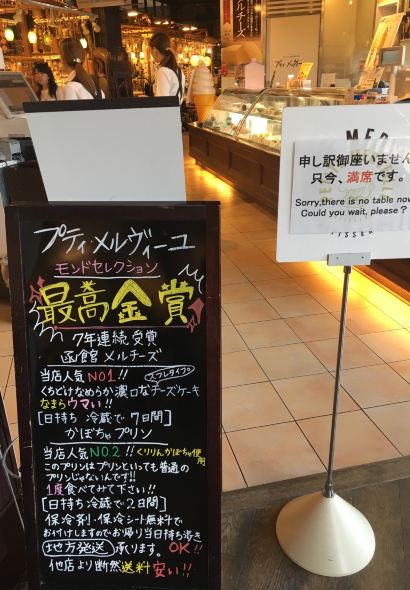 プティ・メルヴィーユ
モンドセレクション
最高金賞
7年連続受賞
函館メルチーズ
スフレタイプ
当店人気NO1!!
くちどけなめらか濃口なチーズケーキ
なまらウマい!!
[日持ち 冷蔵で7日間]
かぼちゃプリン
当店人気NO.2!! くりりんかぼちゃ使用
このプリンはプリンといっても普通の
プリンじゃないんです!!
1度食べてみて下さい!!
[日持ち冷蔵で2日間]
保冷剤・保冷シート無料で
お付けしますのでお帰り当日持ち歩き
OK!!
地方発送 承ります。
他店より断然送料安い!!
申し訳御座いません
只今、満席です。
Sorry,there is no table now
Could you wait, please?